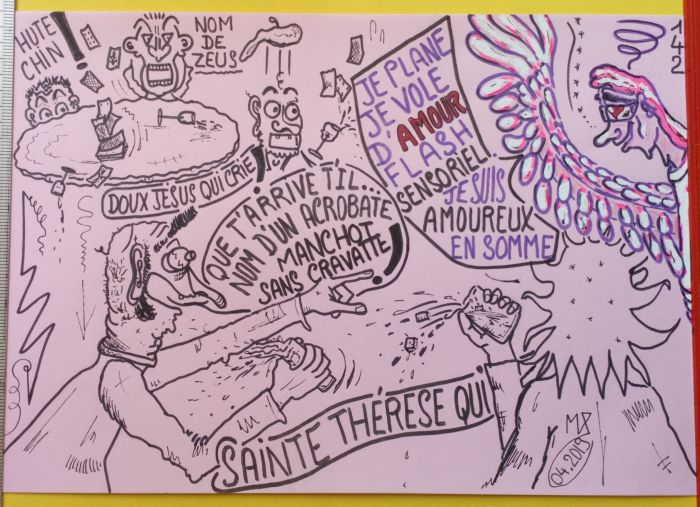 HUTE
CHIN !
NOM
DE
ZEUS
DOUX JÉSUS QUI CRIE !
QUE T'ARRIVE T'IL...
NOM D'UN ACROBATE
MANCHOT
SANS CRAVATTE !
JE PLANE
JE VOLE
D'AMOUR
FLASH
SENSORIEL.
JE SUIS
AMOUREUX
EN SOMME
142
SAINTE THÉRESE QUI
04.2019